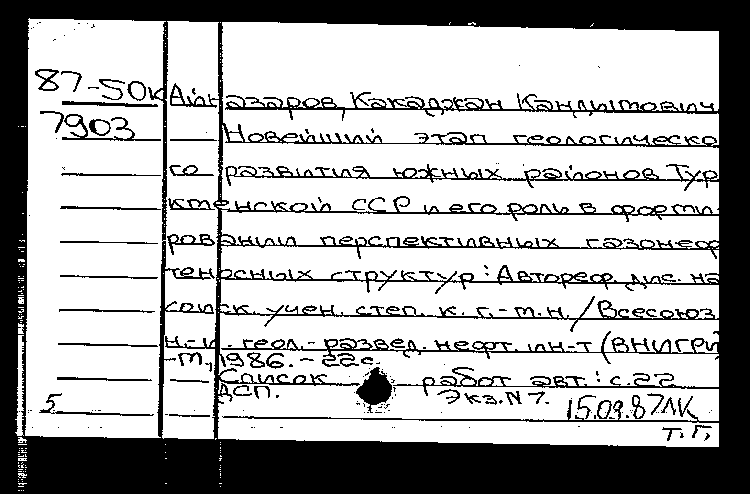 87-50к Айназаров, Какаджан Кандымович
7903 Новейший этап геологическо
го развития южных районов Тур
кменской ССР и его роль в форми-
ровании перспективных газонеф
теносных структур: Автореф. дис. на
соиск. учен. степ. к. г.-м.н. / Всесоюз.
н.-и. геол.-развед. нефт. ин-т (ВНИГРИ
-м., 1986. - 22 с.
Список работ авт.: с. 22
ДСП. Экз. N 7.
5 15.09.87 ЛК
Т. Г.